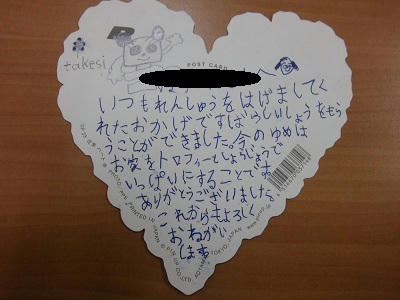 takesi
POST CARD
いつもれんしゅうをはげましてく
れたおかげですばらしいしょうをもら
うことができました。今のゆめは
お家をトロフィーとしょうじょうで
いっぱいにすることです。
ありがとうございました。
これからもよろしく
おねがい
します
PRINTED IN JAPAN © PIN UP CO.,LTD. AOYAMA, TOKYO, JAPAN